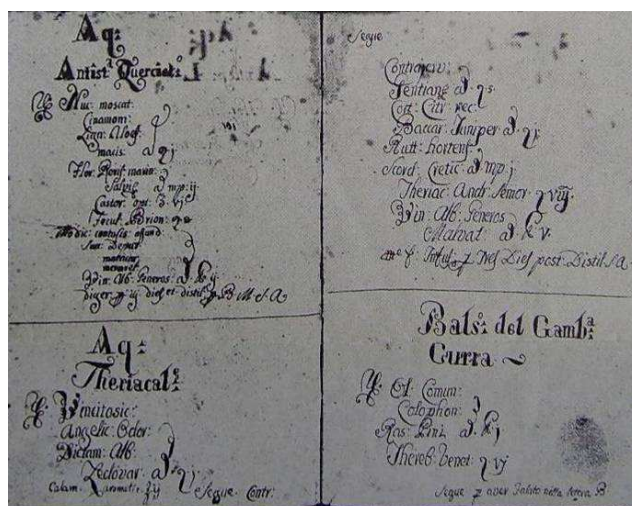 Aq:
Antist: Quercet:
Nuc: moscat:
Cinamom:
Lign: Aloes:
macis: a
Flor: Rorif: marin:
Salvie a mp: ij
Castor: opt: 3: vj
Fecul: Brion:
Vin: Alb: Generos: a
diger: p iij dies et distil: p B. M. S. A.
Aq:
Theriacal:
Vincitosic:
Angelic: Odor:
Dictam: Alb:
Zedovar: a
Calam: aromatic:
Segue Contr:
Segue
Contrajerv:
Gentiane a
Cort: Citr: sec:
Baccar: Juniper: a
Rutt: hortens:
Scord: Cretic: a mp: j
Theriac: Andr: Semor: viij
Vin: Alb: Generos
Malvat: a v.
Dies post: Distil: S. A.
Bals: del Gamba
Curra
Ol: Comun:
Colophon:
Ras: Pini a
Thereb: Venet: vj
Segue nella lettera B